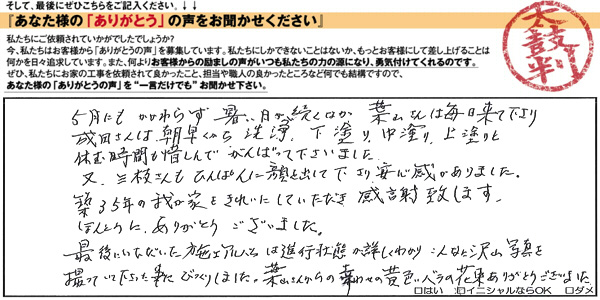 そして、最後にぜひこちらをご記入ください。↓↓
『あなた様の「ありがとう」の声をお聞かせください』
私たちにご依頼されていかがでしたでしょうか?
今、私たちはお客様から「ありがとうの声」を募集しています。私たちにしかできないことはないか、もっとお客様にして差し上げることは
何かを日々追求しています。また、何よりお客様からの励ましの声がいつも私たちの力の源になり、勇気付けてくれるのです。
ぜひ、私たちにお家の工事を依頼されて良かったこと、担当や職人の良かったところなど何でも結構ですので、
あなた様の「ありがとうの声」を“一言だけでも”お聞かせ下さい。
太鼓判
5月にもかかわらず暑い日が続くなか 葉山さんは毎日来て下さり
成田さんは朝早くから洗浄、下塗り、中塗り、上塗りと
休む時間も惜しんでがんばって下さいました。
又、三枝さんもひんぱんに顔を出して下さり安心感がありました。
築35年の我が家をきれいにしていただき感謝致します。
ほんとうに、ありがとうございました。
最後にいただいた施工アルバムは進行状態が詳しくわかり こんなに沢山写真を
撮っていて下さった事にびっくりしました。葉山さんからの幸わせの黄色いバラの花束ありがとうございました
□はい □イニシャルならOK □ダメ